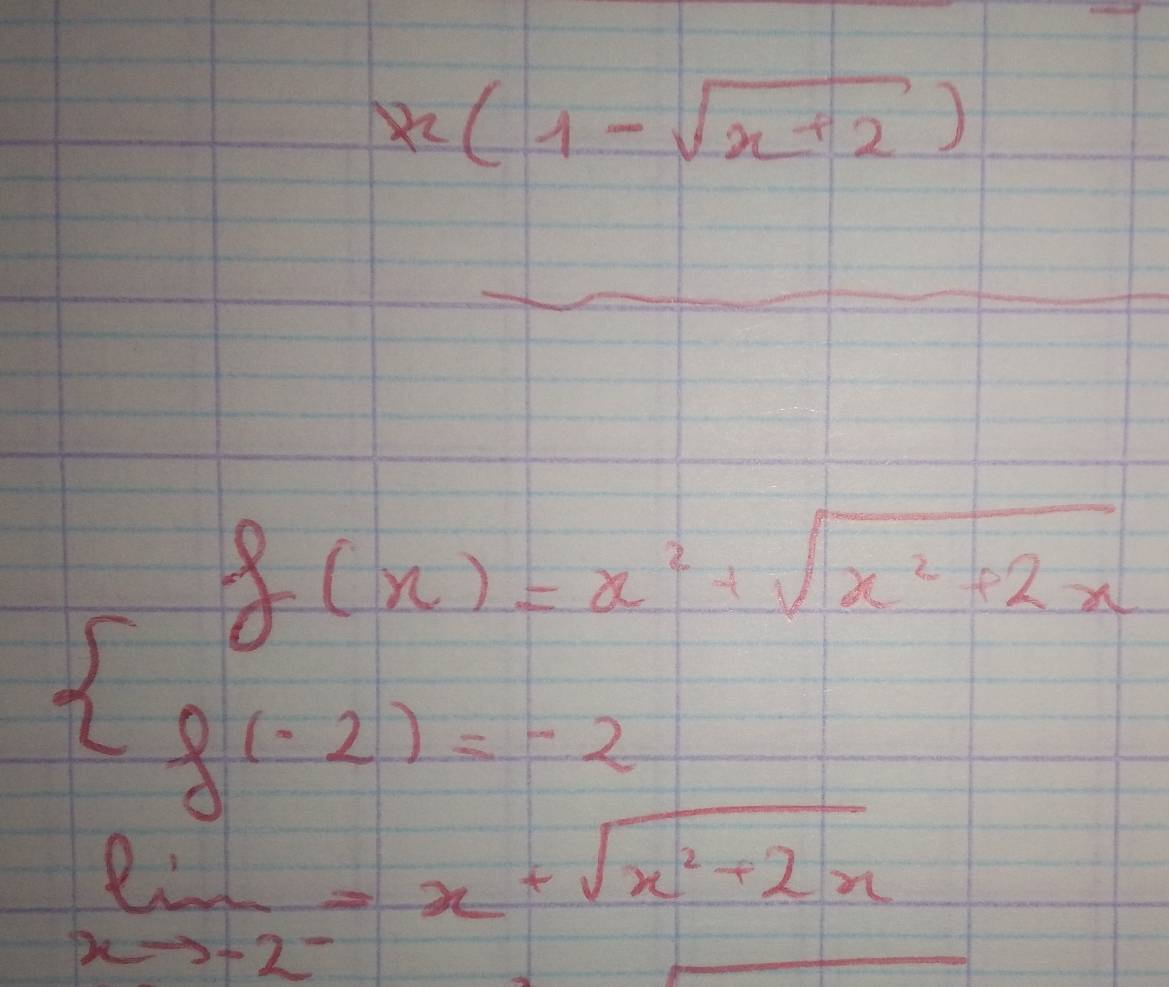 x(1-√(x+2))
f(x) = x² + √(x²+2x)
f(-2) = -2
lim = x + √(x²+2x)
x→-2⁻